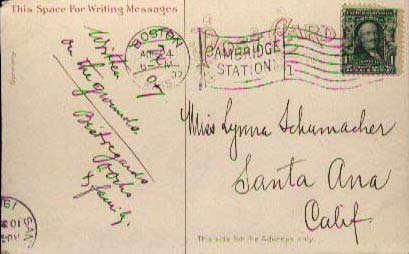 This Space For Writing Messages
Written
on the grounds.
Best regards
& family.
Germany
BOSTON
07
CAMBRIDGE
STATION
1
POST CARD
Miss Lynna Schumacher
Santa Ana
Calif.
This side for the Address only.
SAN
10